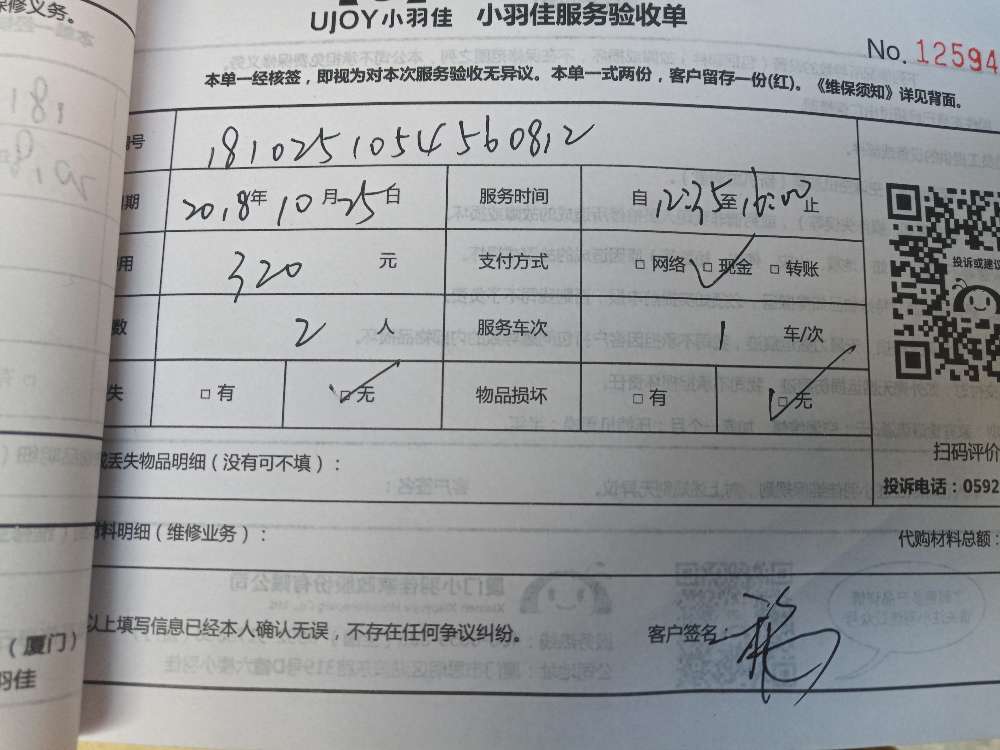 保修义务。
UJOY小羽佳 小羽佳服务验收单
No. 12594
本单一经核签，即视为对本次服务验收无异议。本单一式两份，客户留存一份(红)。《维保须知》详见背面。
号 1810251054560812
期 2018年10月25日 服务时间 自12:35至16:00止
用 320元 支付方式 □网络 □现金 □转账
数 2人 服务车次 1车/次
失 □有 □无 物品损坏 □有 □无
投诉或建议
扫码评价
投诉电话：0592
或丢失物品明细（没有可不填）：
材料明细（维修业务）：
代购材料总额：
以上填写信息已经本人确认无误，不存在任何争议纠纷。 客户签名：
（厦门）
羽佳